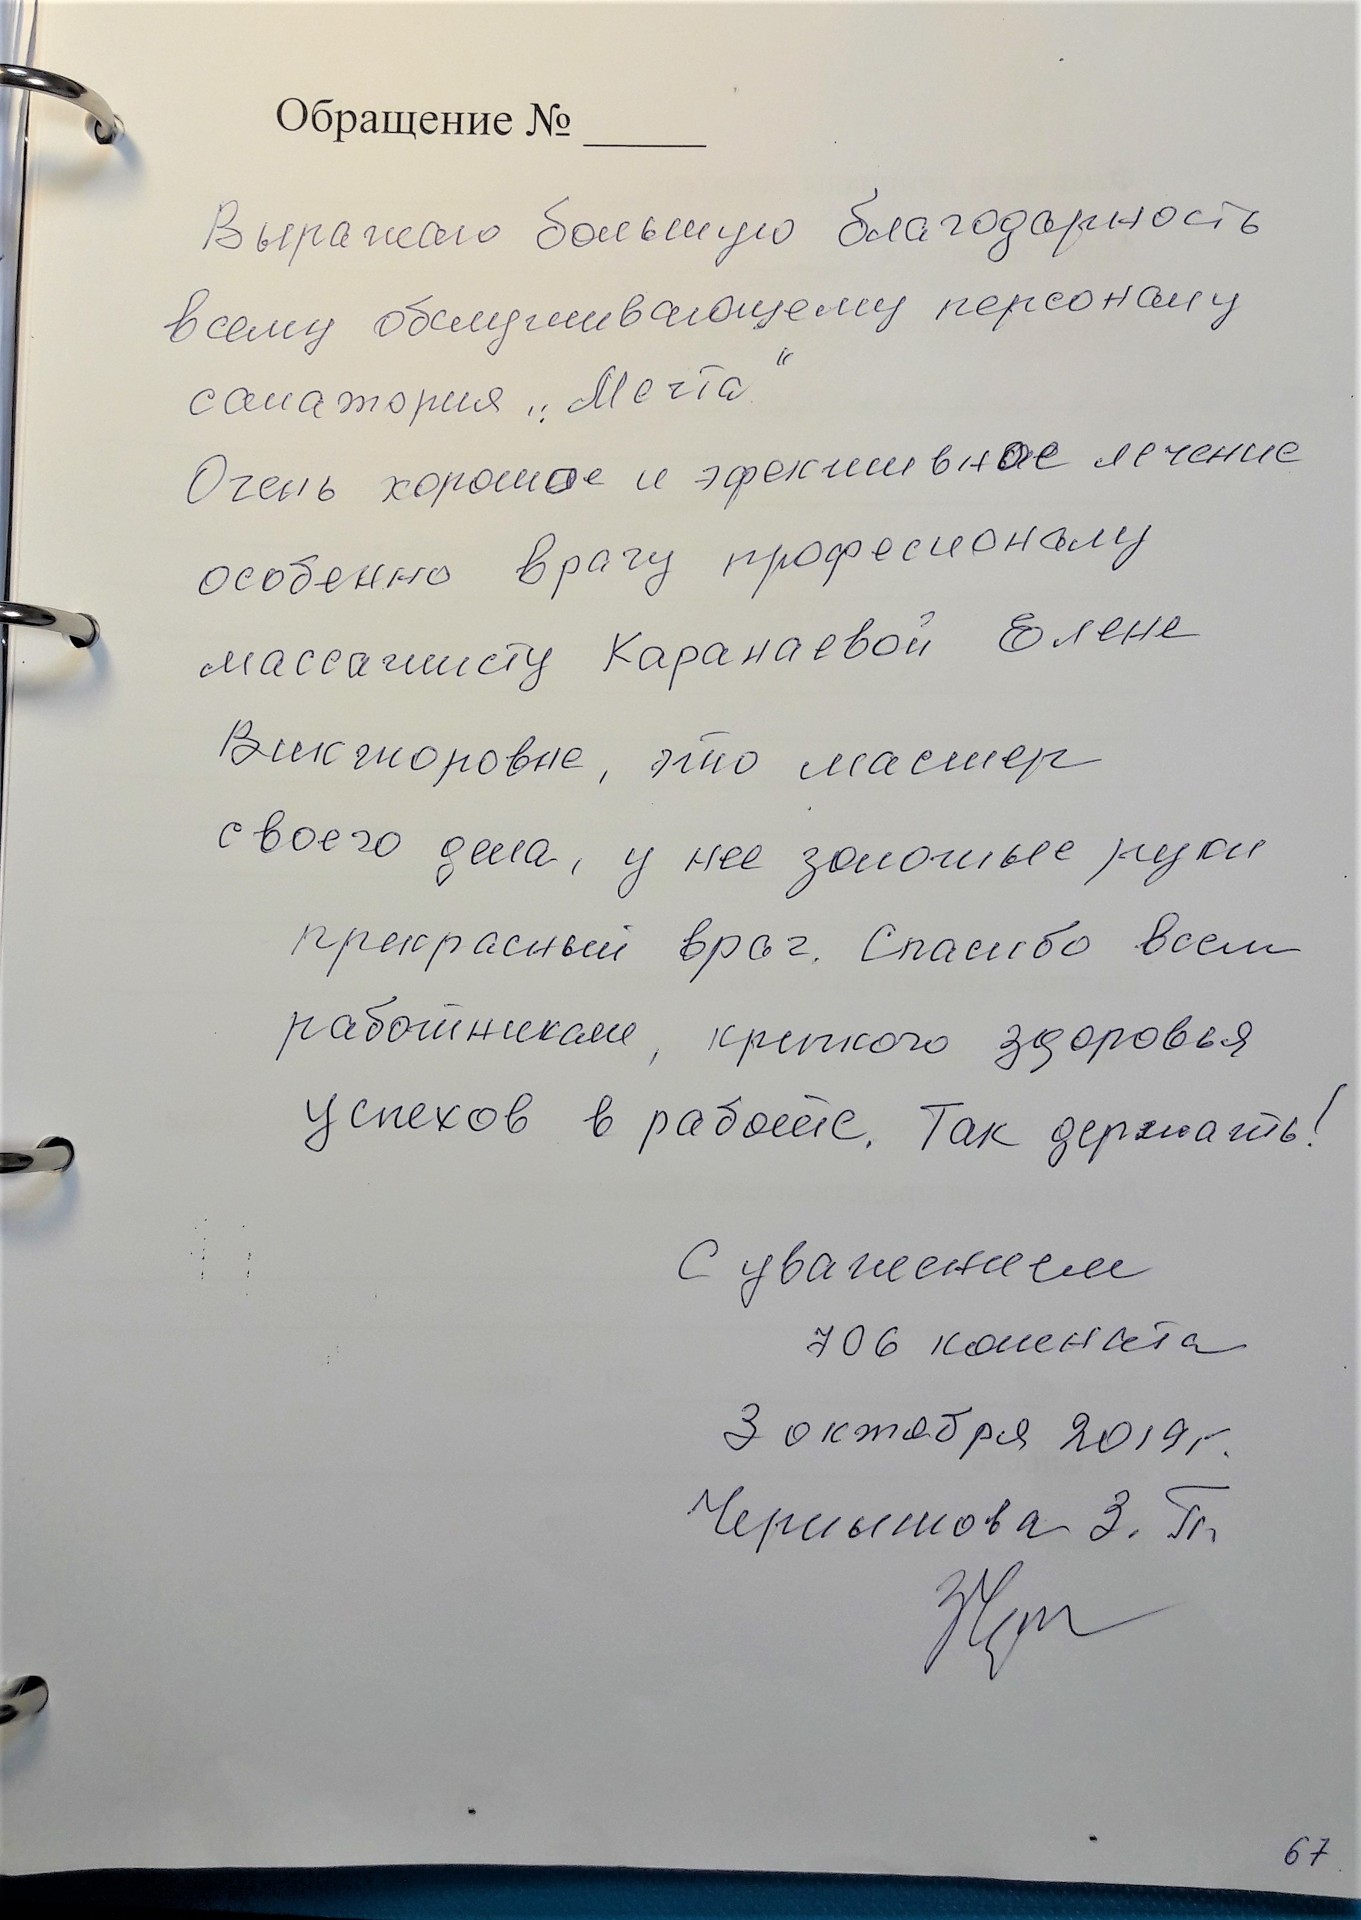 Обращение № _____
Выражаю большую благодарность
всему обслуживающему персоналу
санатория „Мечта“
Очень хорошое и эфективное лечение
особенно врачу професионалу
массажисту Каранаевой Елене
Викторовне, это мастер
своего дела, у нее золотые руки
прекрасный врач. Спасибо всем
работникам, крепкого здоровья
успехов в работе. Так держать!
С уважением
706 комната
3 октября 2019г.
Чернышова З.
67